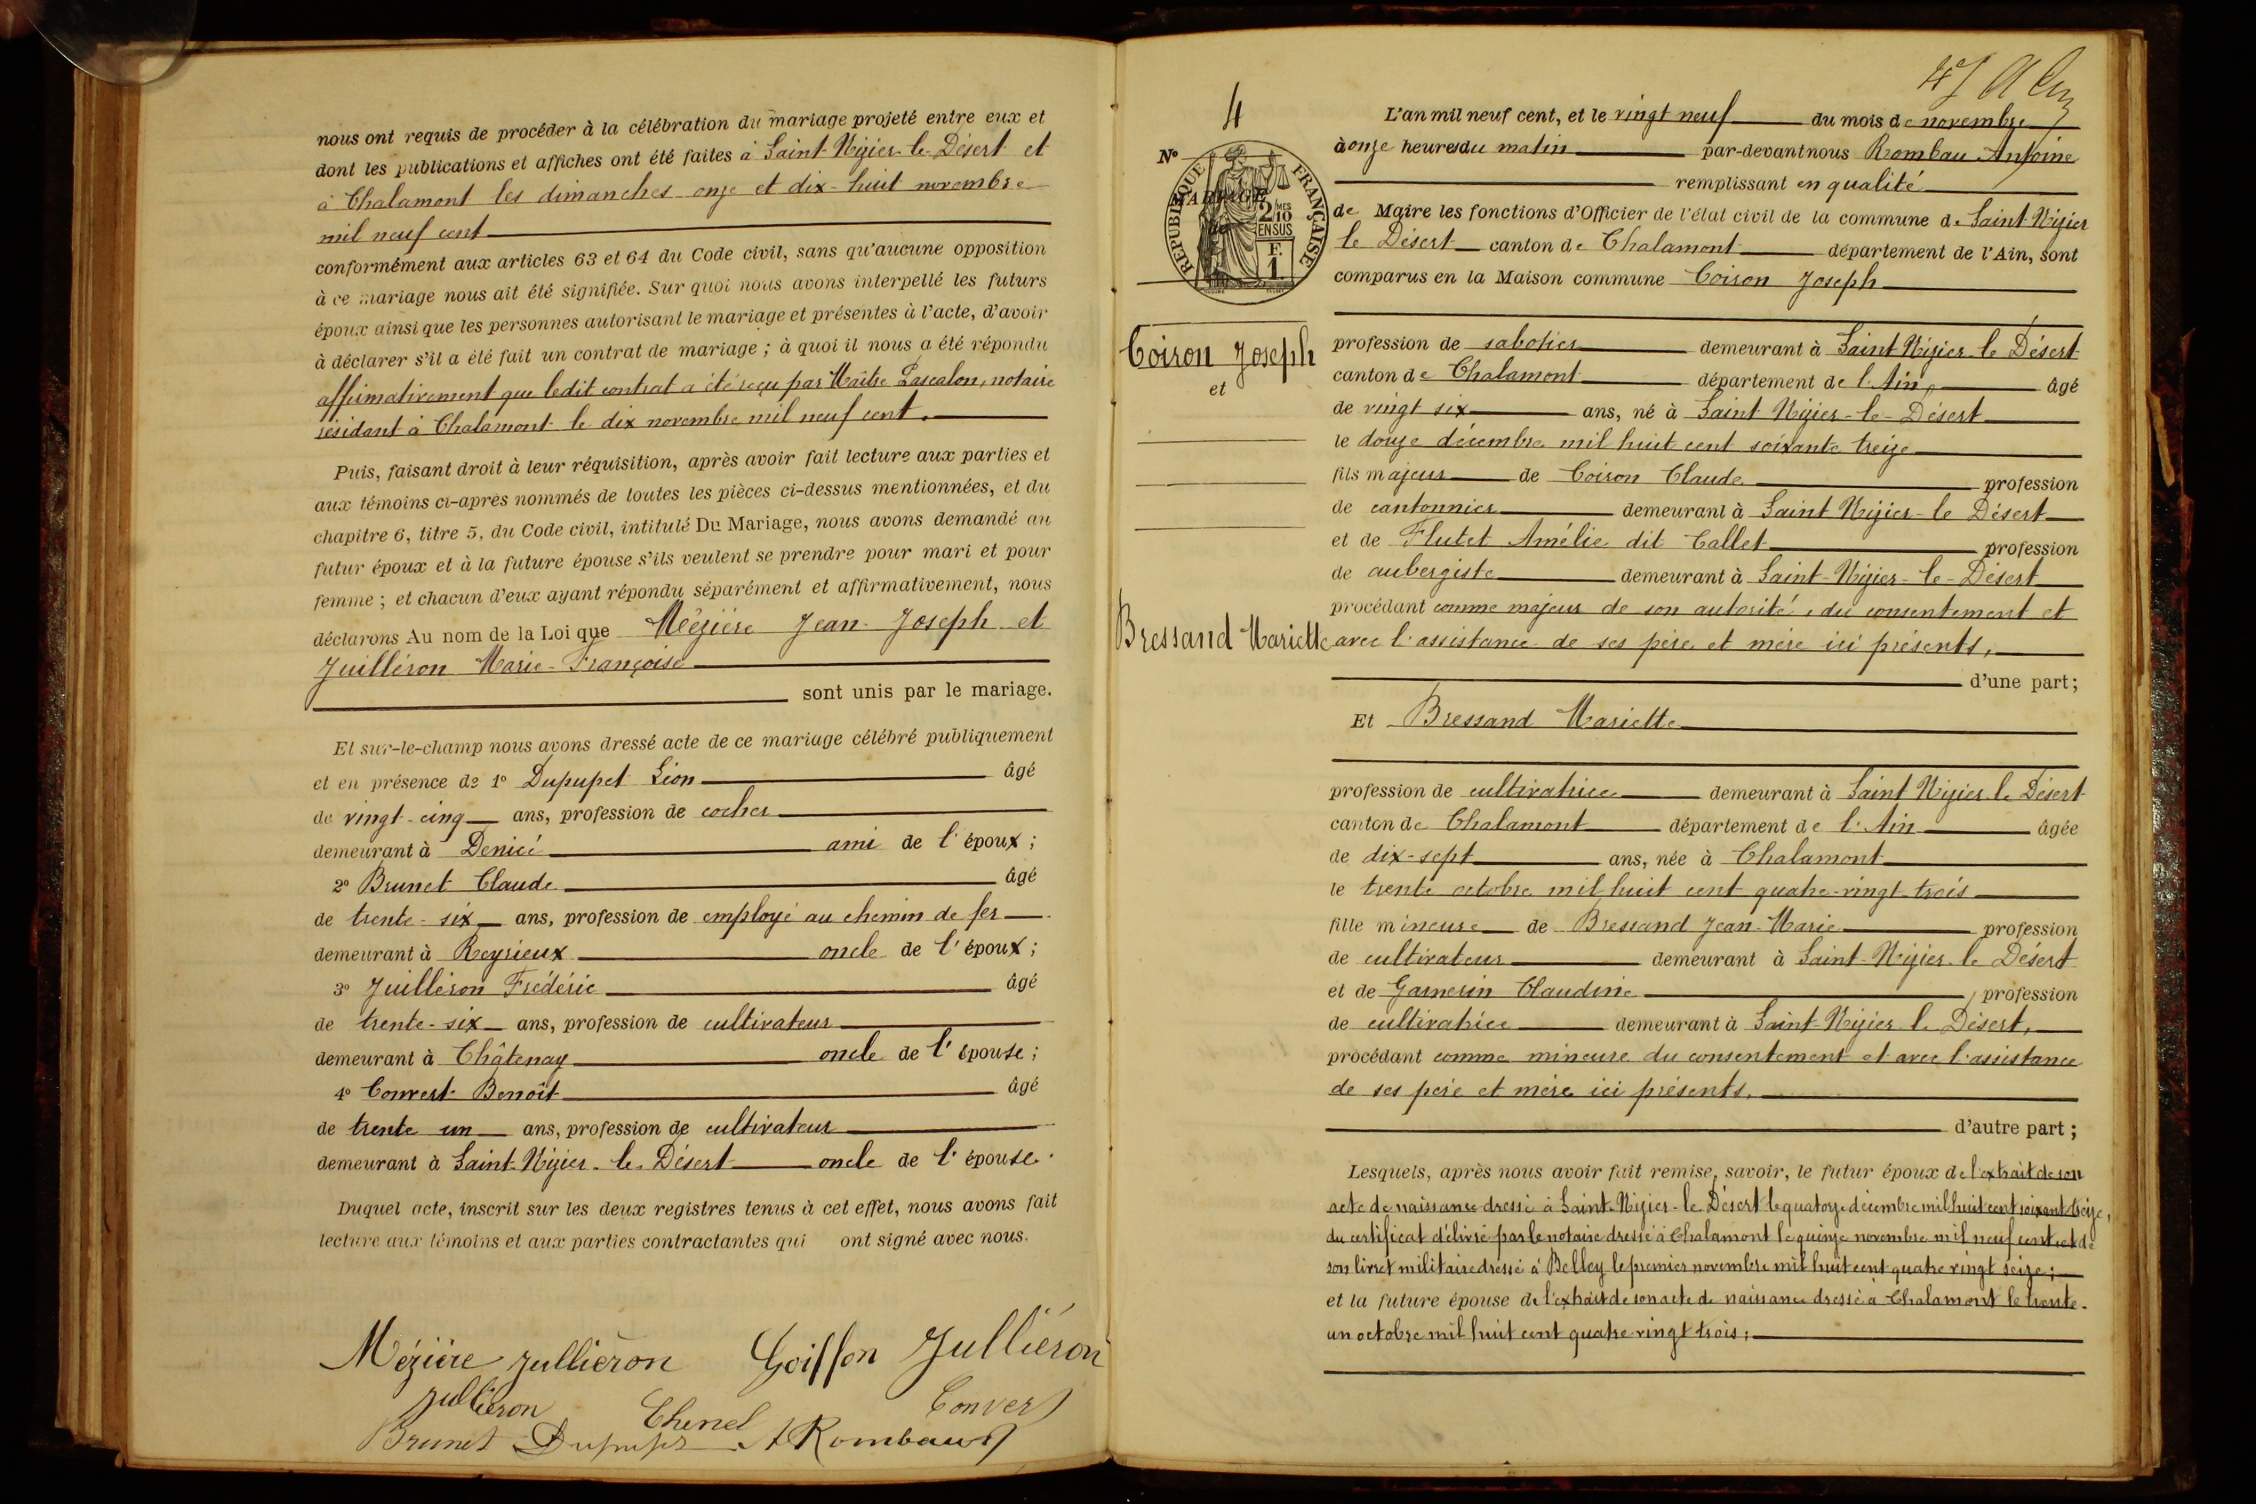 nous ont requis de procéder à la célébration du mariage projeté entre eux et
dont les publications et affiches ont été faites à Saint-Nizier-le-Désert et
à Chalamont les dimanches onze et dix-huit novembre
mil neuf cent
conformément aux articles 63 et 64 du Code civil, sans qu'aucune opposition
à ce mariage nous ait été signifiée. Sur quoi nous avons interpellé les futurs
époux ainsi que les personnes autorisant le mariage et présentes à l'acte, d'avoir
à déclarer s'il a été fait un contrat de mariage ; à quoi il nous a été répondu
affirmativement que ledit contrat a été reçu par Maître Lascalon, notaire
résidant à Chalamont le dix novembre mil neuf cent.
Puis, faisant droit à leur réquisition, après avoir fait lecture aux parties et
aux témoins ci-après nommés de toutes les pièces ci-dessus mentionnées, et du
chapitre 6, titre 5, du Code civil, intitulé Du Mariage, nous avons demandé au
futur époux et à la future épouse s'ils veulent se prendre pour mari et pour
femme ; et chacun d'eux ayant répondu séparément et affirmativement, nous
déclarons Au nom de la Loi que Mézière Jean-Joseph et
Juilléron Marie-Françoise
sont unis par le mariage.
Et sur-le-champ nous avons dressé acte de ce mariage célébré publiquement
et en présence de 1° Dupupet Léon âgé
de vingt-cinq ans, profession de cocher
demeurant à Denicé ami de l'époux ;
2° Brunet Claude âgé
de trente-six ans, profession de employé au chemin de fer
demeurant à Reyrieux oncle de l'époux ;
3° Juilléron Frédéric âgé
de trente-six ans, profession de cultivateur
demeurant à Châtenay oncle de l'épouse ;
4° Convert Benoît âgé
de trente un ans, profession de cultivateur
demeurant à Saint-Nizier-le-Désert oncle de l'épouse.
Duquel acte, inscrit sur les deux registres tenus à cet effet, nous avons fait
lecture aux témoins et aux parties contractantes qui ont signé avec nous.
Mézière Julliéron Goiffon Julliéron
Julliéron Chenel Convert
Brunet Dupupet A Rombaud
4
N°
RÉPUBLIQUE FRANÇAISE
MARIAGE
2/10 MES
EN SUS
F.
1
Coiron Joseph
et
Bressand Mariette
L'an mil neuf cent, et le vingt neuf du mois de novembre
à onze heures du matin par-devant nous Rombau Antoine
remplissant en qualité
de Maire les fonctions d'Officier de l'état civil de la commune de Saint Nizier
le Désert canton de Chalamont département de l'Ain, sont
comparus en la Maison commune Coiron Joseph
profession de sabotier demeurant à Saint Nizier le Désert
canton de Chalamont département de l'Ain, âgé
de vingt six ans, né à Saint Nizier-le-Désert
le douze décembre mil huit cent soixante treize
fils majeur de Coiron Claude profession
de cantonnier demeurant à Saint Nizier-le Désert
et de Flutet Amélie dit Callet profession
de aubergiste demeurant à Saint-Nizier-le-Désert
procédant comme majeur de son autorité, du consentement et
avec l'assistance de ses père et mère ici présents,
d'une part ;
Et Bressand Mariette
profession de cultivatrice demeurant à Saint Nizier le Désert
canton de Chalamont département de l'Ain âgée
de dix-sept ans, née à Chalamont
le trente octobre mil huit cent quatre-vingt trois
fille mineure de Bressand Jean-Marie profession
de cultivateur demeurant à Saint-Nizier-le Désert
et de Garnerin Claudine, profession
de cultivatrice demeurant à Saint-Nizier le Désert,
procédant comme mineure du consentement et avec l'assistance
de ses père et mère ici présents,
d'autre part ;
Lesquels, après nous avoir fait remise, savoir, le futur époux de l'extrait de son
acte de naissance dressé à Saint-Nizier-le Désert le quatorze décembre mil huit cent soixant treize,
du certificat délivré par le notaire dressé à Chalamont le quinze novembre mil neuf cent et de
son livret militaire dressé à Belley le premier novembre mil huit cent quatre vingt seize ;
et la future épouse de l'extrait de son acte de naissance dressé à Chalamont le trente-
un octobre mil huit cent quatre vingt trois ;